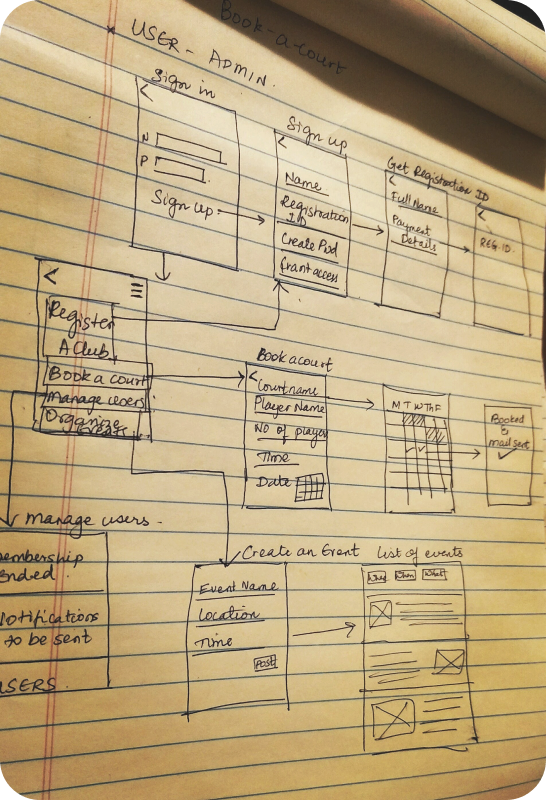 Book-a-court
* USER - ADMIN.
Sign in
N
P
Sign up
Sign up
Name
Registration
ID
Create Pwd
Grant access
Get Registration ID
Full Name
Payment
Details
REG. ID.
Register
A Club
Book a court
Manage users
Organize
events
Book a court
Court name
Player Name
No of player
Time
Date
M T W Th F
Booked
&
mail sent
Manage users -
embership
ended.
Notifications
to be sent
USERS
Create an Event
Event Name
Location
Time
Post
List of events
When
What